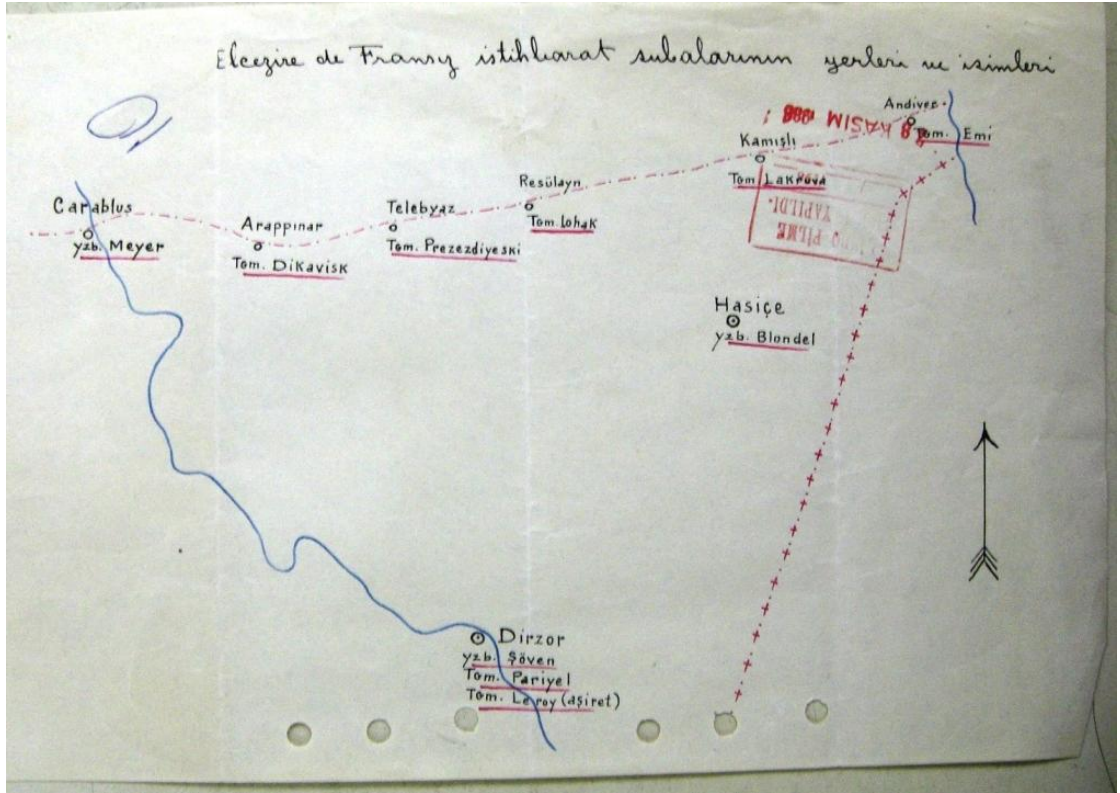 Elcezire de Fransız istihbarat subalarının yerleri ve isimleri
Andiver
Tom. Emi
8 KASIM
Kamışlı
Tom. Lakruva
FİLME
YAPILDI.
Resülayn
Tom. Lohak
Telebyaz
Tom. Prezezdiyeski
Arappınar
Tom. Dikavisk
Carablus
yzb. Meyer
Hasiçe
yzb. Blondel
Dirzor
yzb. Şöven
Tom. Pariyel
Tom. Leroy (aşiret)